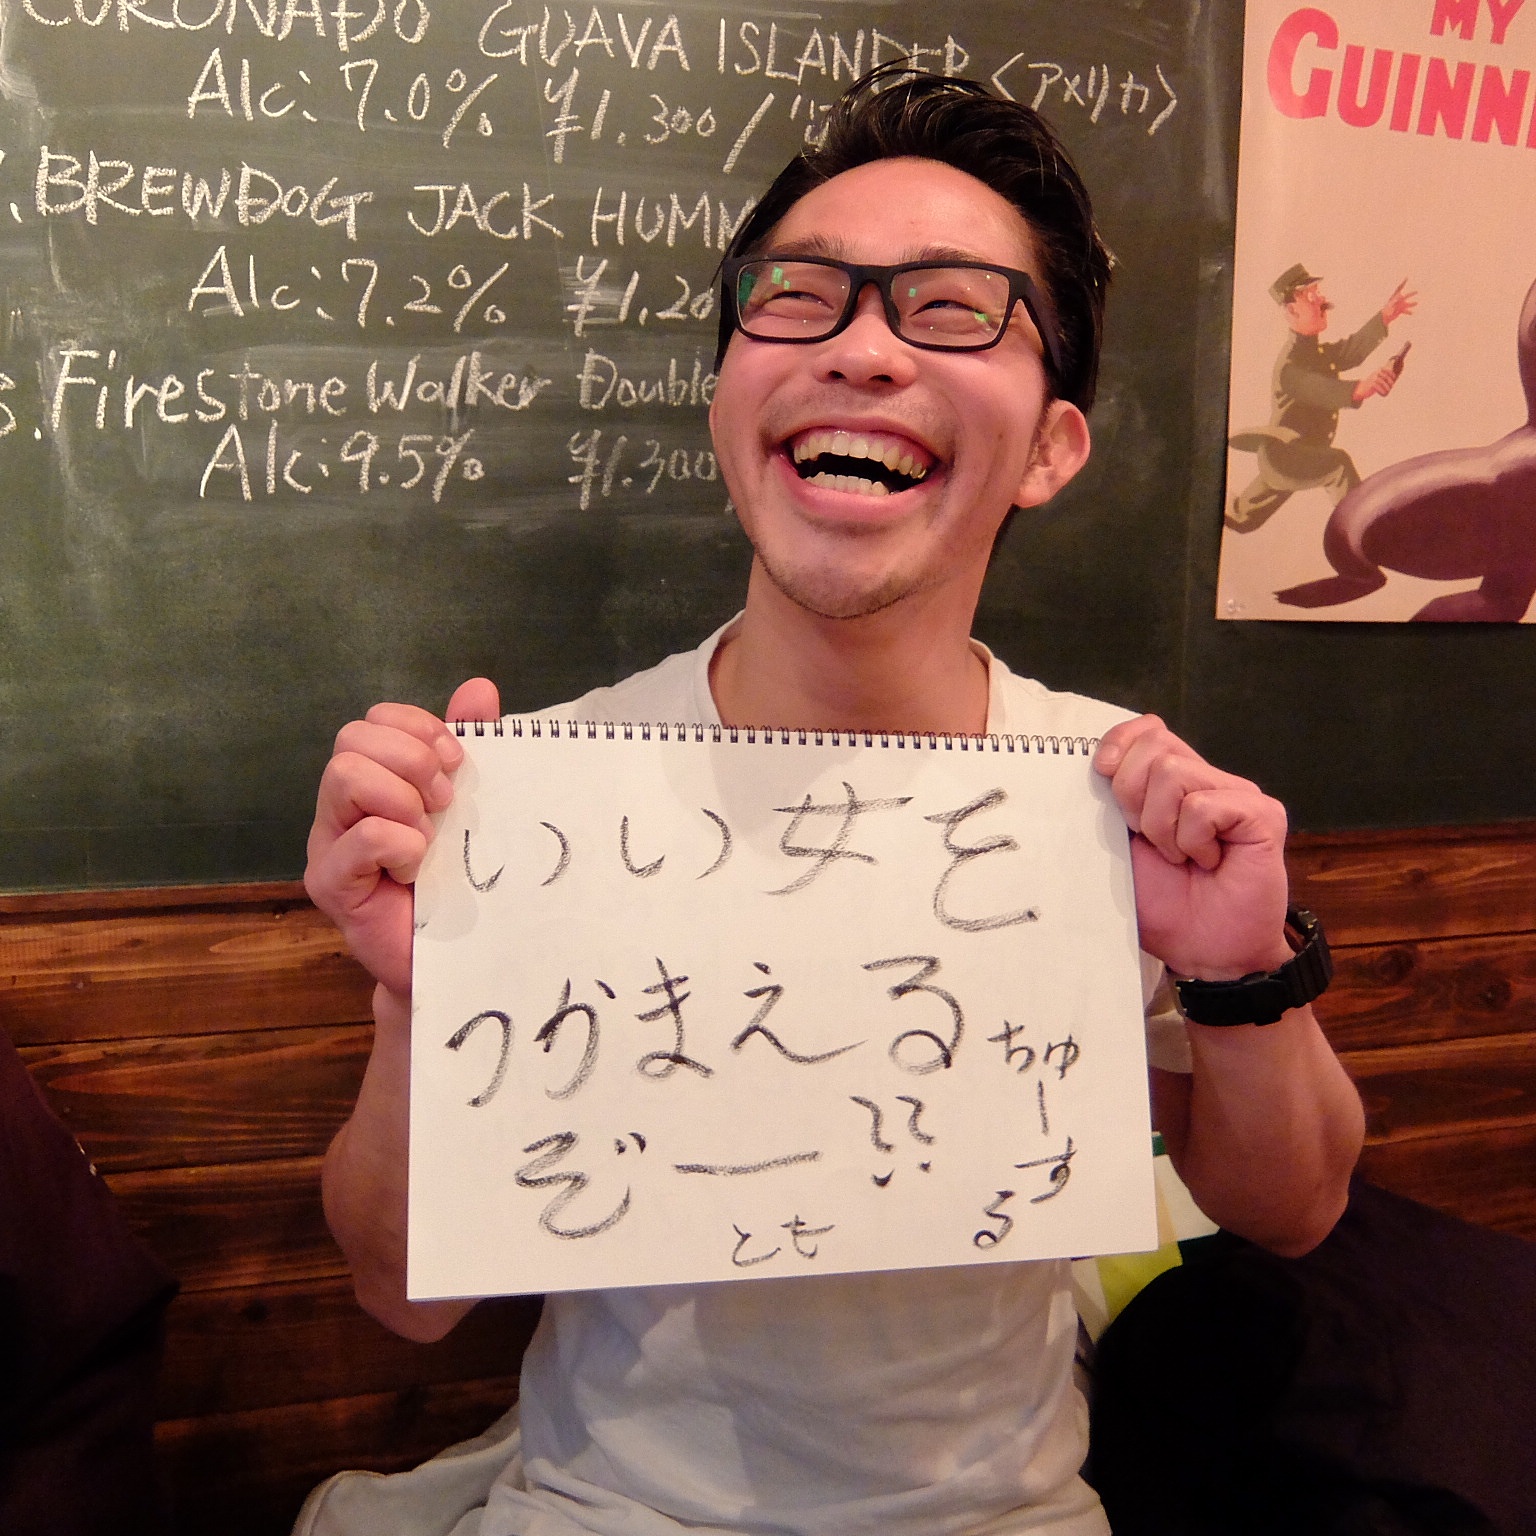 CORONADO GUAVA ISLANDER <アメリカ>
Alc:7.0% ¥1.300/
BREWDOG JACK
Alc:7.2%
Firestone Walker Double
Alc:9.5% ¥1.300
MY
いい女を
つかまえる
ぞー??
ちゅーする
とも